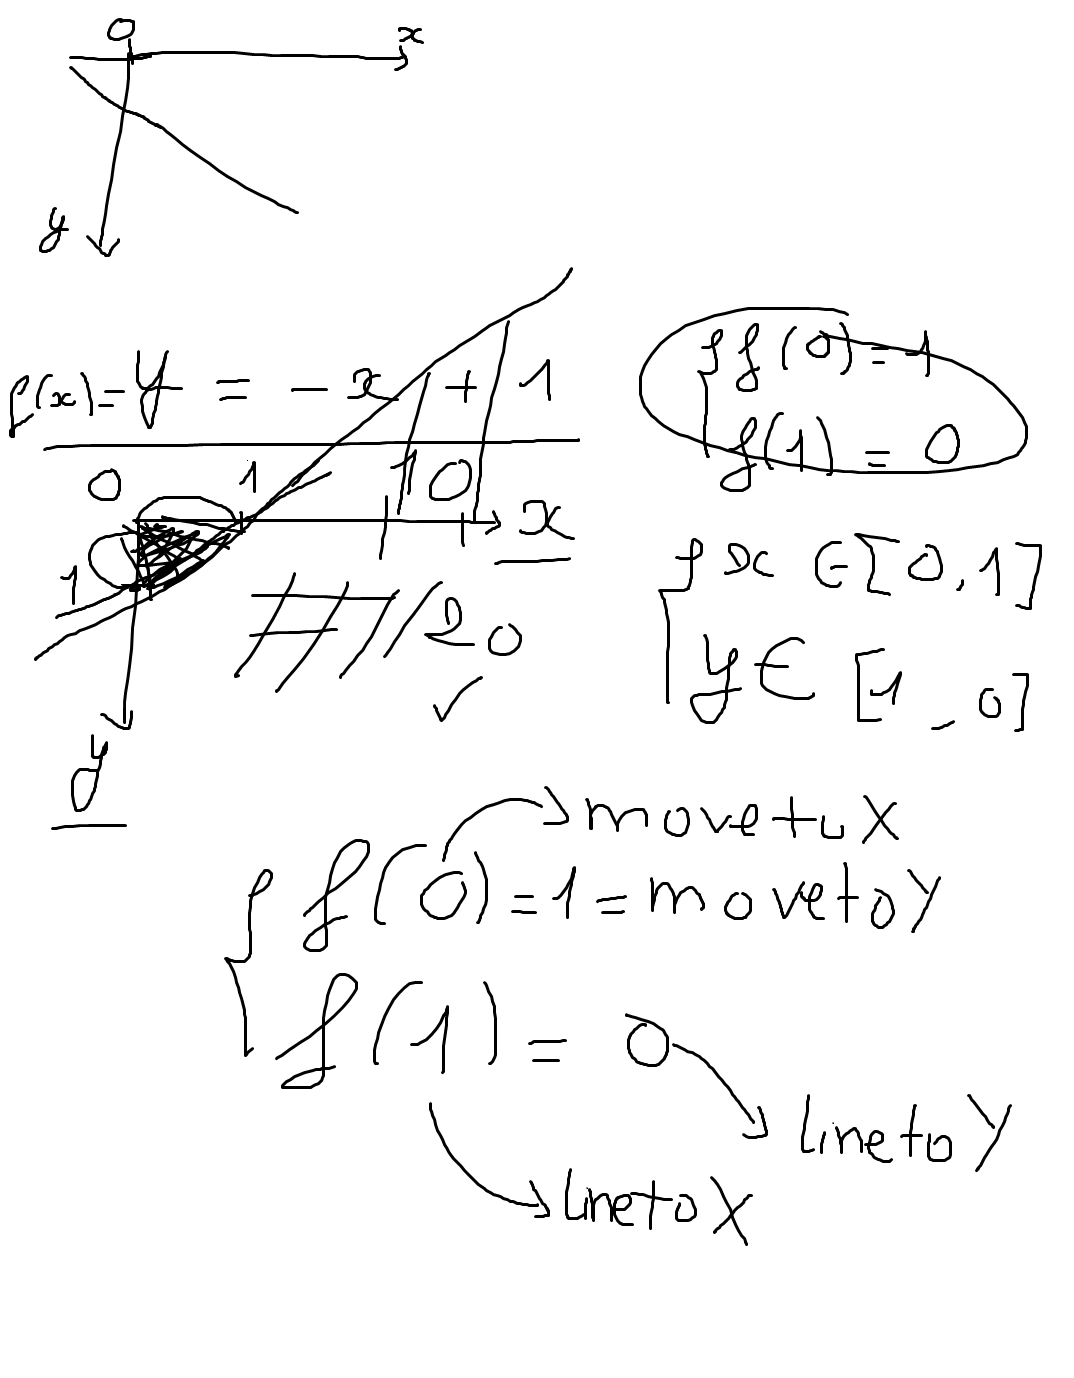 0
x
y
f(x)=y = -x + 1
{f(0)=1
f(1) = 0
0 1 10 x
1
20
y
{x ∈ [0,1]
y ∈ [1,0]
moveto X
{f(0)=1=moveto Y
f(1) = 0
lineto Y
lineto X